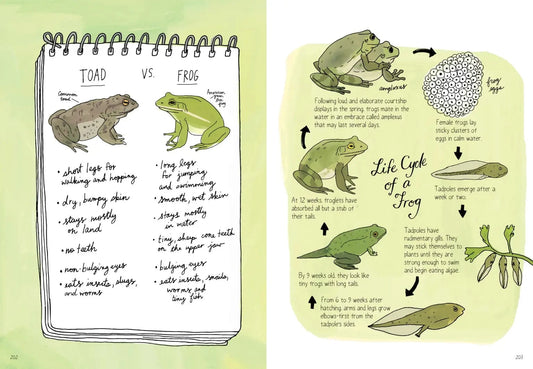 TOAD VS. FROG
Common
toad
American
green tree
frog
• short legs for
walking and hopping
• dry, bumpy skin
• stays mostly
on land
• no teeth
• non-bulging eyes
• eats insects, slugs,
and worms
• long legs
for jumping
and swimming
• smooth, wet skin
• stays mostly
in water
• tiny, sharp cone teeth
on the upper jaw
• bulging eyes
• eats insects, snails,
worms and
tiny fish
202
Life Cycle
of a
frog
amplexus
Following loud and elaborate courtship
displays in the spring, frogs mate in the
water in an embrace called amplexus
that may last several days.
frog
eggs
Female frogs lay
sticky clusters of
eggs in calm water.
Tadpoles emerge after a
week or two.
Tadpoles have
rudimentary gills. They
may stick themselves to
plants until they are
strong enough to swim
and begin eating algae.
From 6 to 9 weeks after
hatching, arms and legs grow
elbows-first from the
tadpole's sides.
By 9 weeks old, they look like
tiny frogs with long tails.
At 12 weeks, froglets have
absorbed all but a stub of
their tails.
203